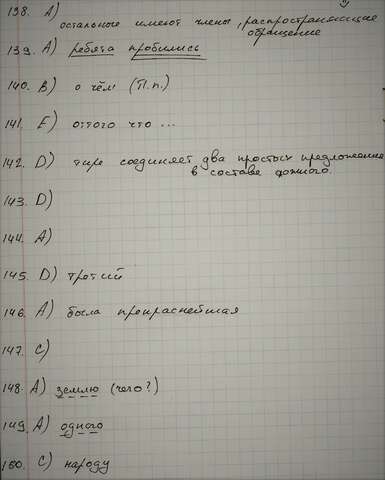 138. А)
остальные имеют члены, распространяющие
обращение
139. А) ребята пробились
140. В) о чём (П.п.)
141. Е) оттого что ...
142. D) тире соединяет два простых предложения
в составе сложного.
143. D)
144. А)
145. D) третий
146. А) была прекраснейшая
147. С)
148. А) землю (чего?)
149. А) одного
150. С) народу